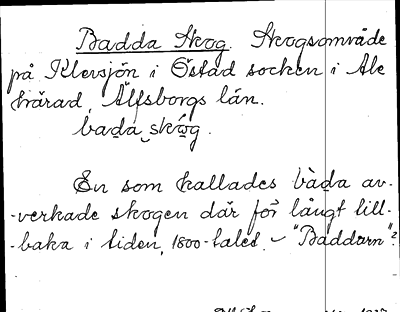 Badda Skog. Skogsområde
på Klevsjön i Östad socken i Ale
härad, Älfsborgs län.
bada skóg.
En som kallades bàda av-
-verkade skogen där för långt till-
-baka i tiden, 1800-talet. - "Baddarn"?